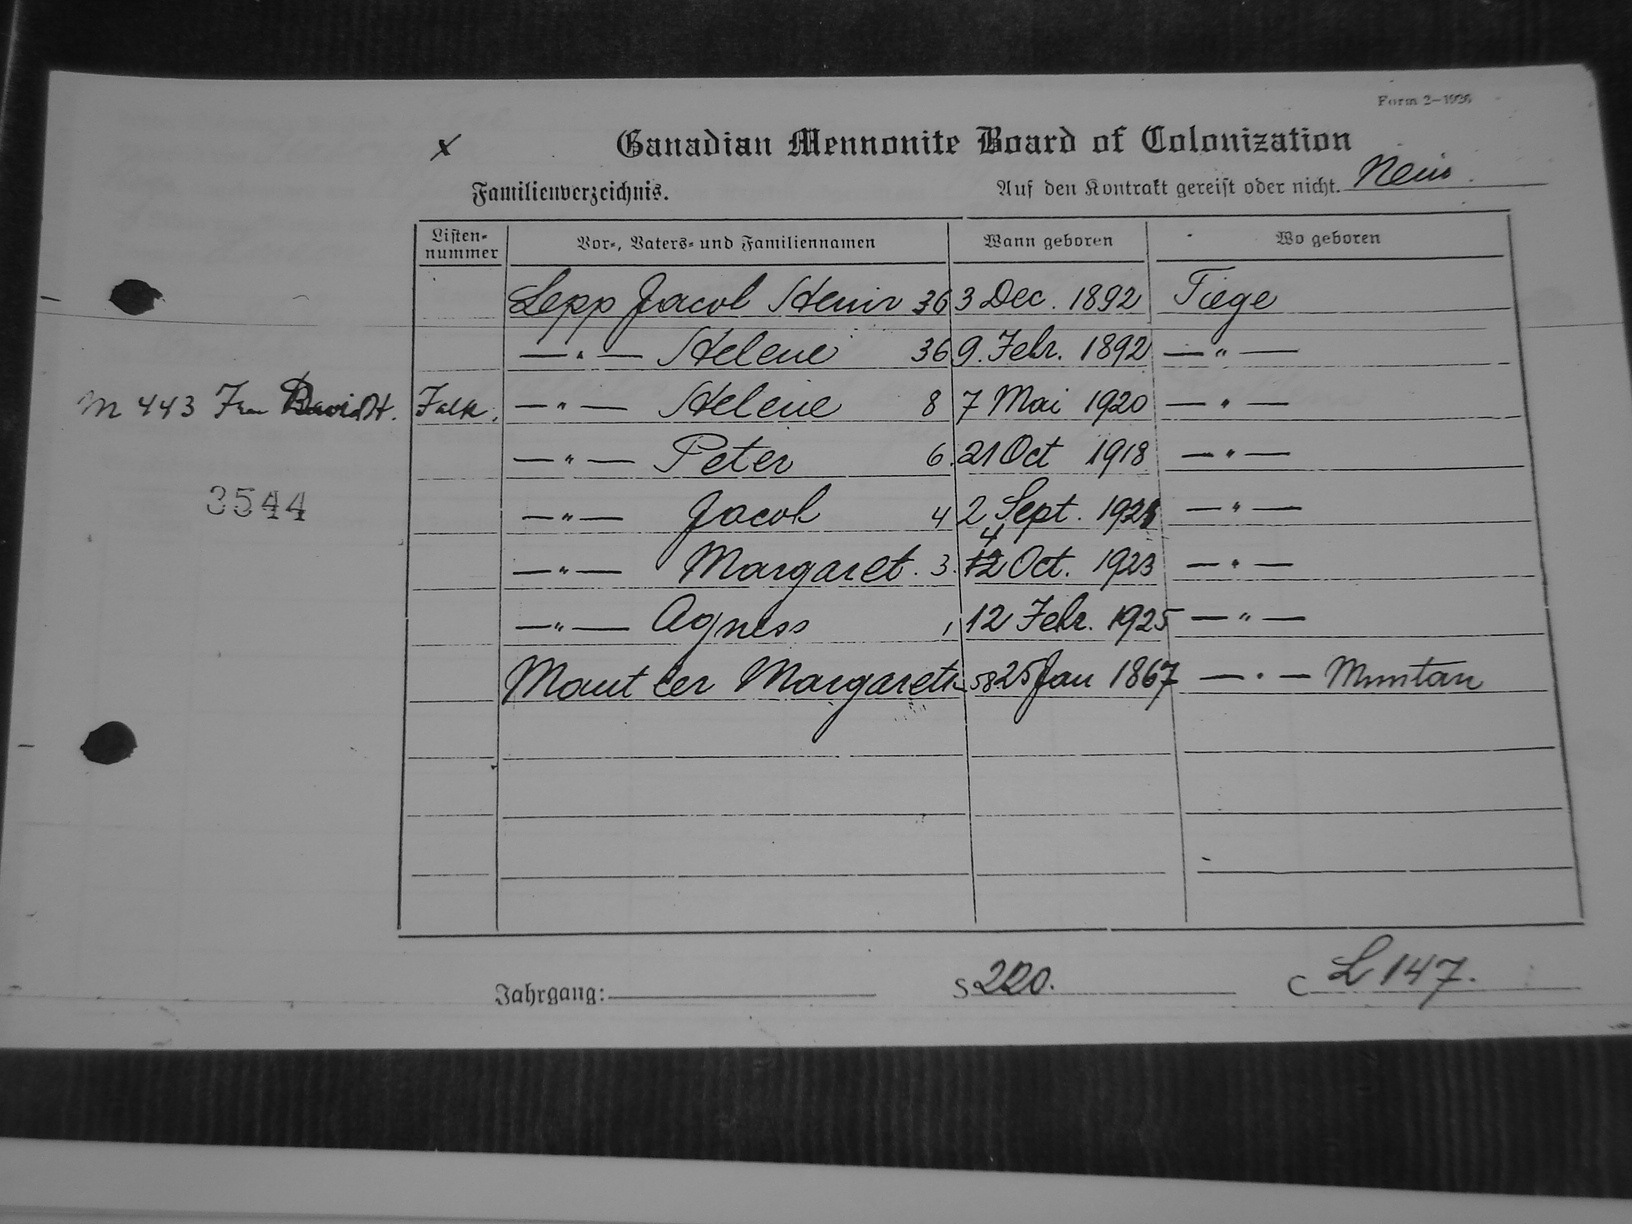 Form 2-1926
x Canadian Mennonite Board of Colonization
Familienverzeichnis. Auf den Kontrakt gereist oder nicht. Nein.
Listen-nummer Vor-, Vaters- und Familiennamen Wann geboren Wo geboren
Lepp Jacob Heinr 36 3 Dec. 1892 Tiege
— " — Helene 36 9. Febr. 1892 — " —
M 443 Frau David H. Falk. — " — Helene 8 7 Mai 1920 — " —
— " — Peter 6. 21 Oct 1918 — " —
3544 — " — Jacob 4 2 Sept. 1921 — " —
— " — Margaret. 3. 4 Oct. 1923 — " —
— " — Agness 1 12 Febr. 1925 — " —
Mautler Margareth 58 25 Jan 1867 — " — Muntau
Jahrgang: S 220. C L 147.